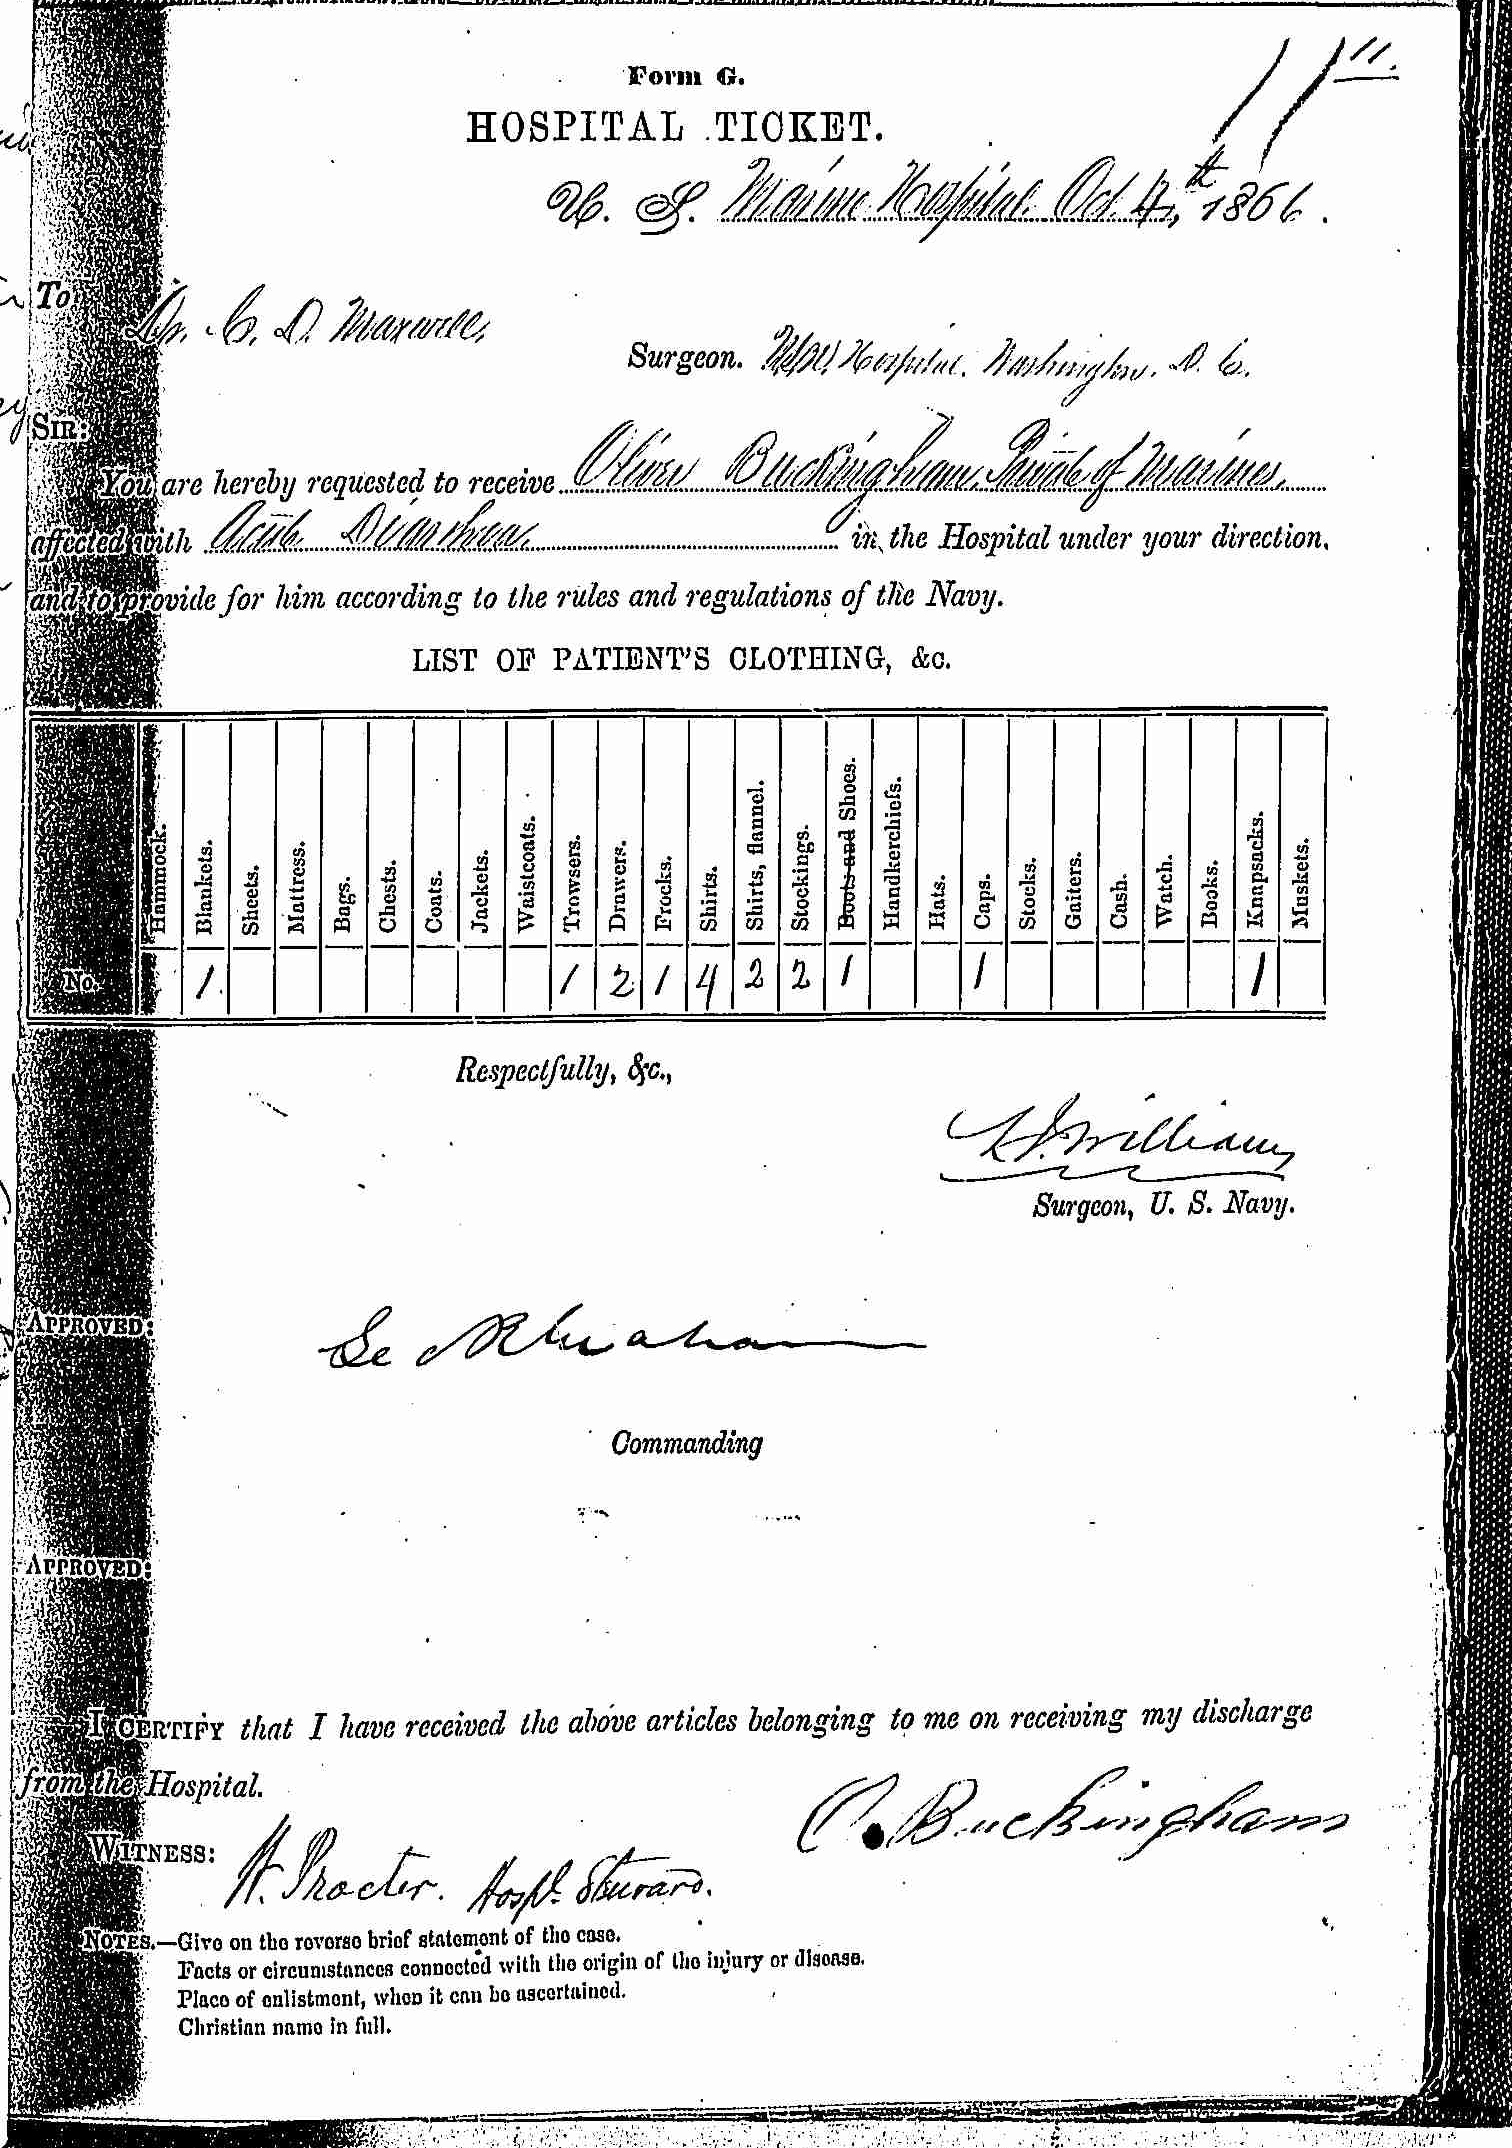 11.
Form G.
HOSPITAL TICKET.
U. S. Marine Hospital. Oct. 4th, 1866.
To
Dr. C. D. Maxwell,
Surgeon. Hospital. Washington. D. C.
SIR:
You are hereby requested to receive Oliver Buckingham, Private of Marines,
affected with Acute Diarrhoea. in the Hospital under your direction,
and to provide for him according to the rules and regulations of the Navy.
LIST OF PATIENT'S CLOTHING, &c.
Hammock. Blankets. Sheets. Mattress. Bags. Chests. Coats. Jackets. Waistcoats. Trowsers. Drawers. Frocks. Shirts. Shirts, flannel. Stockings. Boots and Shoes. Handkerchiefs. Hats. Caps. Stocks. Gaiters. Cash. Watch. Books. Knapsacks. Muskets.
No. 1. 1 2 1 4 2 2 1 1 1
Respectfully, &c.,
Williams
Surgeon, U. S. Navy.
APPROVED:
Commanding
APPROVED:
I CERTIFY that I have received the above articles belonging to me on receiving my discharge
from the Hospital.
O. Buckingham
WITNESS: H. Procter. Hospl. Steward.
NOTES.—Give on the reverse brief statement of the case.
Facts or circumstances connected with the origin of the injury or disease.
Place of enlistment, when it can be ascertained.
Christian name in full.